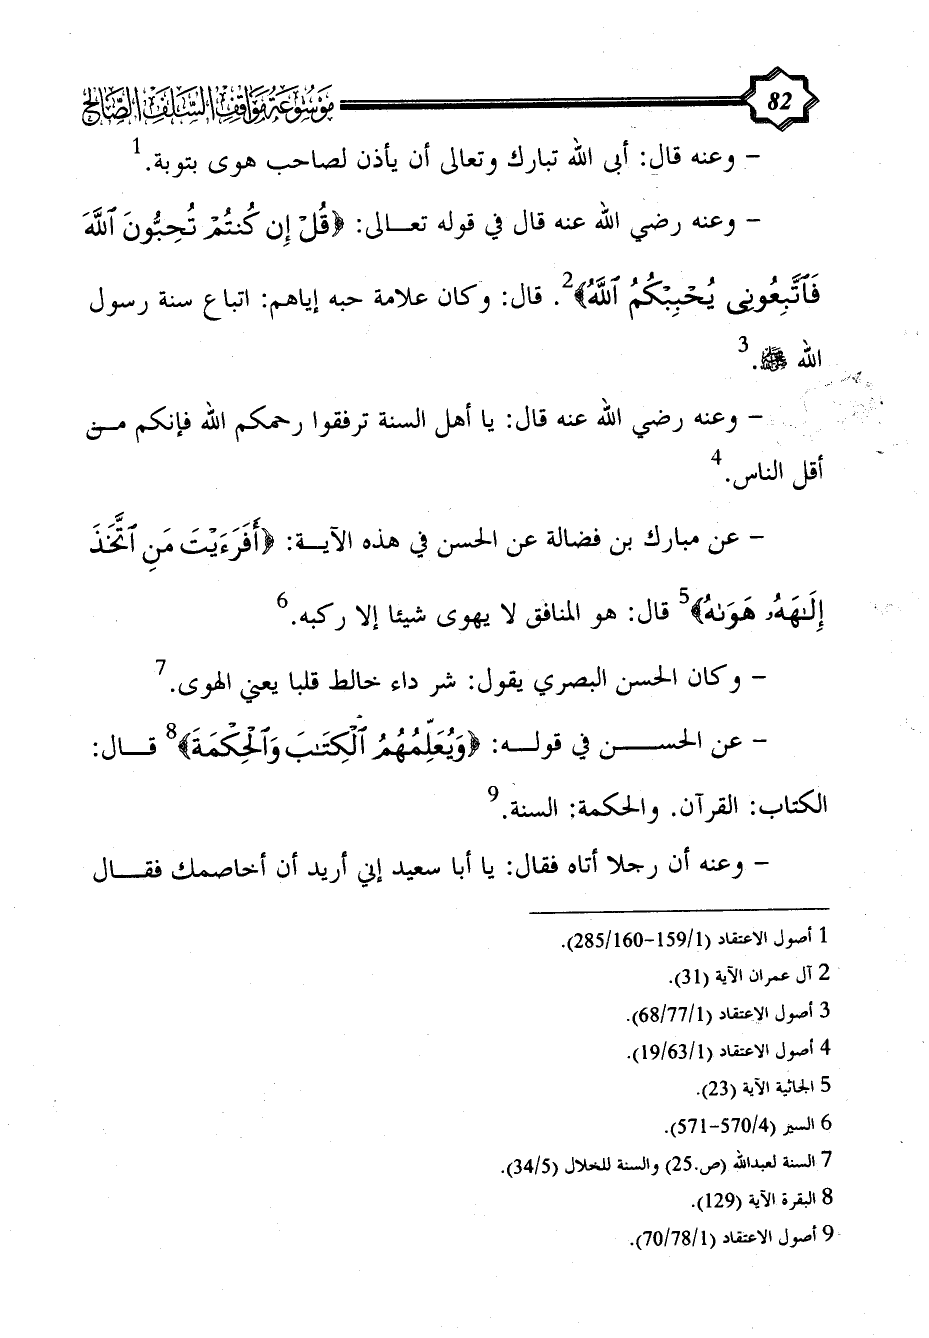 82
موسوعة مواقف السلف الصالح
– وعنه قال: أبى الله تبارك وتعالى أن يأذن لصاحب هوى بتوبة.1
– وعنه رضي الله عنه قال في قوله تعـالى: ﴿قُلْ إِن كُنتُمْ تُحِبُّونَ ٱللَّهَ
فَٱتَّبِعُونِي يُحْبِبْكُمُ ٱللَّهُ﴾2. قال: وكان علامة حبه إياهم: اتباع سنة رسول
الله ﷺ.3
– وعنه رضي الله عنه قال: يا أهل السنة ترفقوا رحمكم الله فإنكم مـن
أقل الناس.4
– عن مبارك بن فضالة عن الحسن في هذه الآيـة: ﴿أَفَرَءَيْتَ مَنِ ٱتَّخَذَ
إِلَـٰهَهُۥ هَوَىٰهُ﴾5 قال: هو المنافق لا يهوى شيئا إلا ركبه.6
– وكان الحسن البصري يقول: شر داء خالط قلبا يعني الهوى.7
– عن الحســن في قولـه: ﴿وَيُعَلِّمُهُمُ ٱلْكِتَـٰبَ وَٱلْحِكْمَةَ﴾8 قـال:
الكتاب: القرآن. والحكمة: السنة.9
– وعنه أن رجلا أتاه فقال: يا أبا سعيد إني أريد أن أخاصمك فقـال
1 أصول الاعتقاد (1/159-160/285).
2 آل عمران الآية (31).
3 أصول الاعتقاد (1/77/68).
4 أصول الاعتقاد (1/63/19).
5 الجاثية الآية (23).
6 السير (4/570-571).
7 السنة لعبدالله (ص.25) والسنة للخلال (5/34).
8 البقرة الآية (129).
9 أصول الاعتقاد (1/78/70).